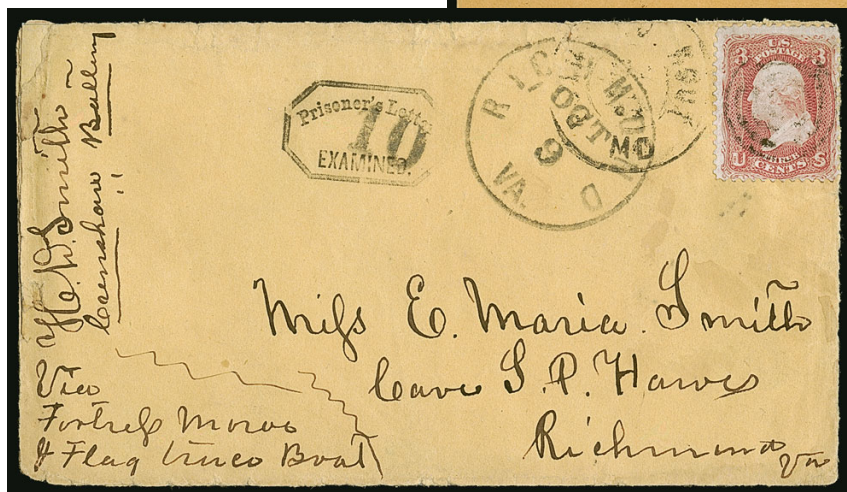 H. W. Smith
Crenshaw Battery
Prisoner's Lette
10
EXAMINED.
RICHMOND
OCT
9
VA.
MD
3 US POSTAGE 3
U THREE CENTS S
Miss E. Maria Smith
Care S. P. Hawes
Richmond
Va
Via
Fortress Monroe
& Flag truce Boat